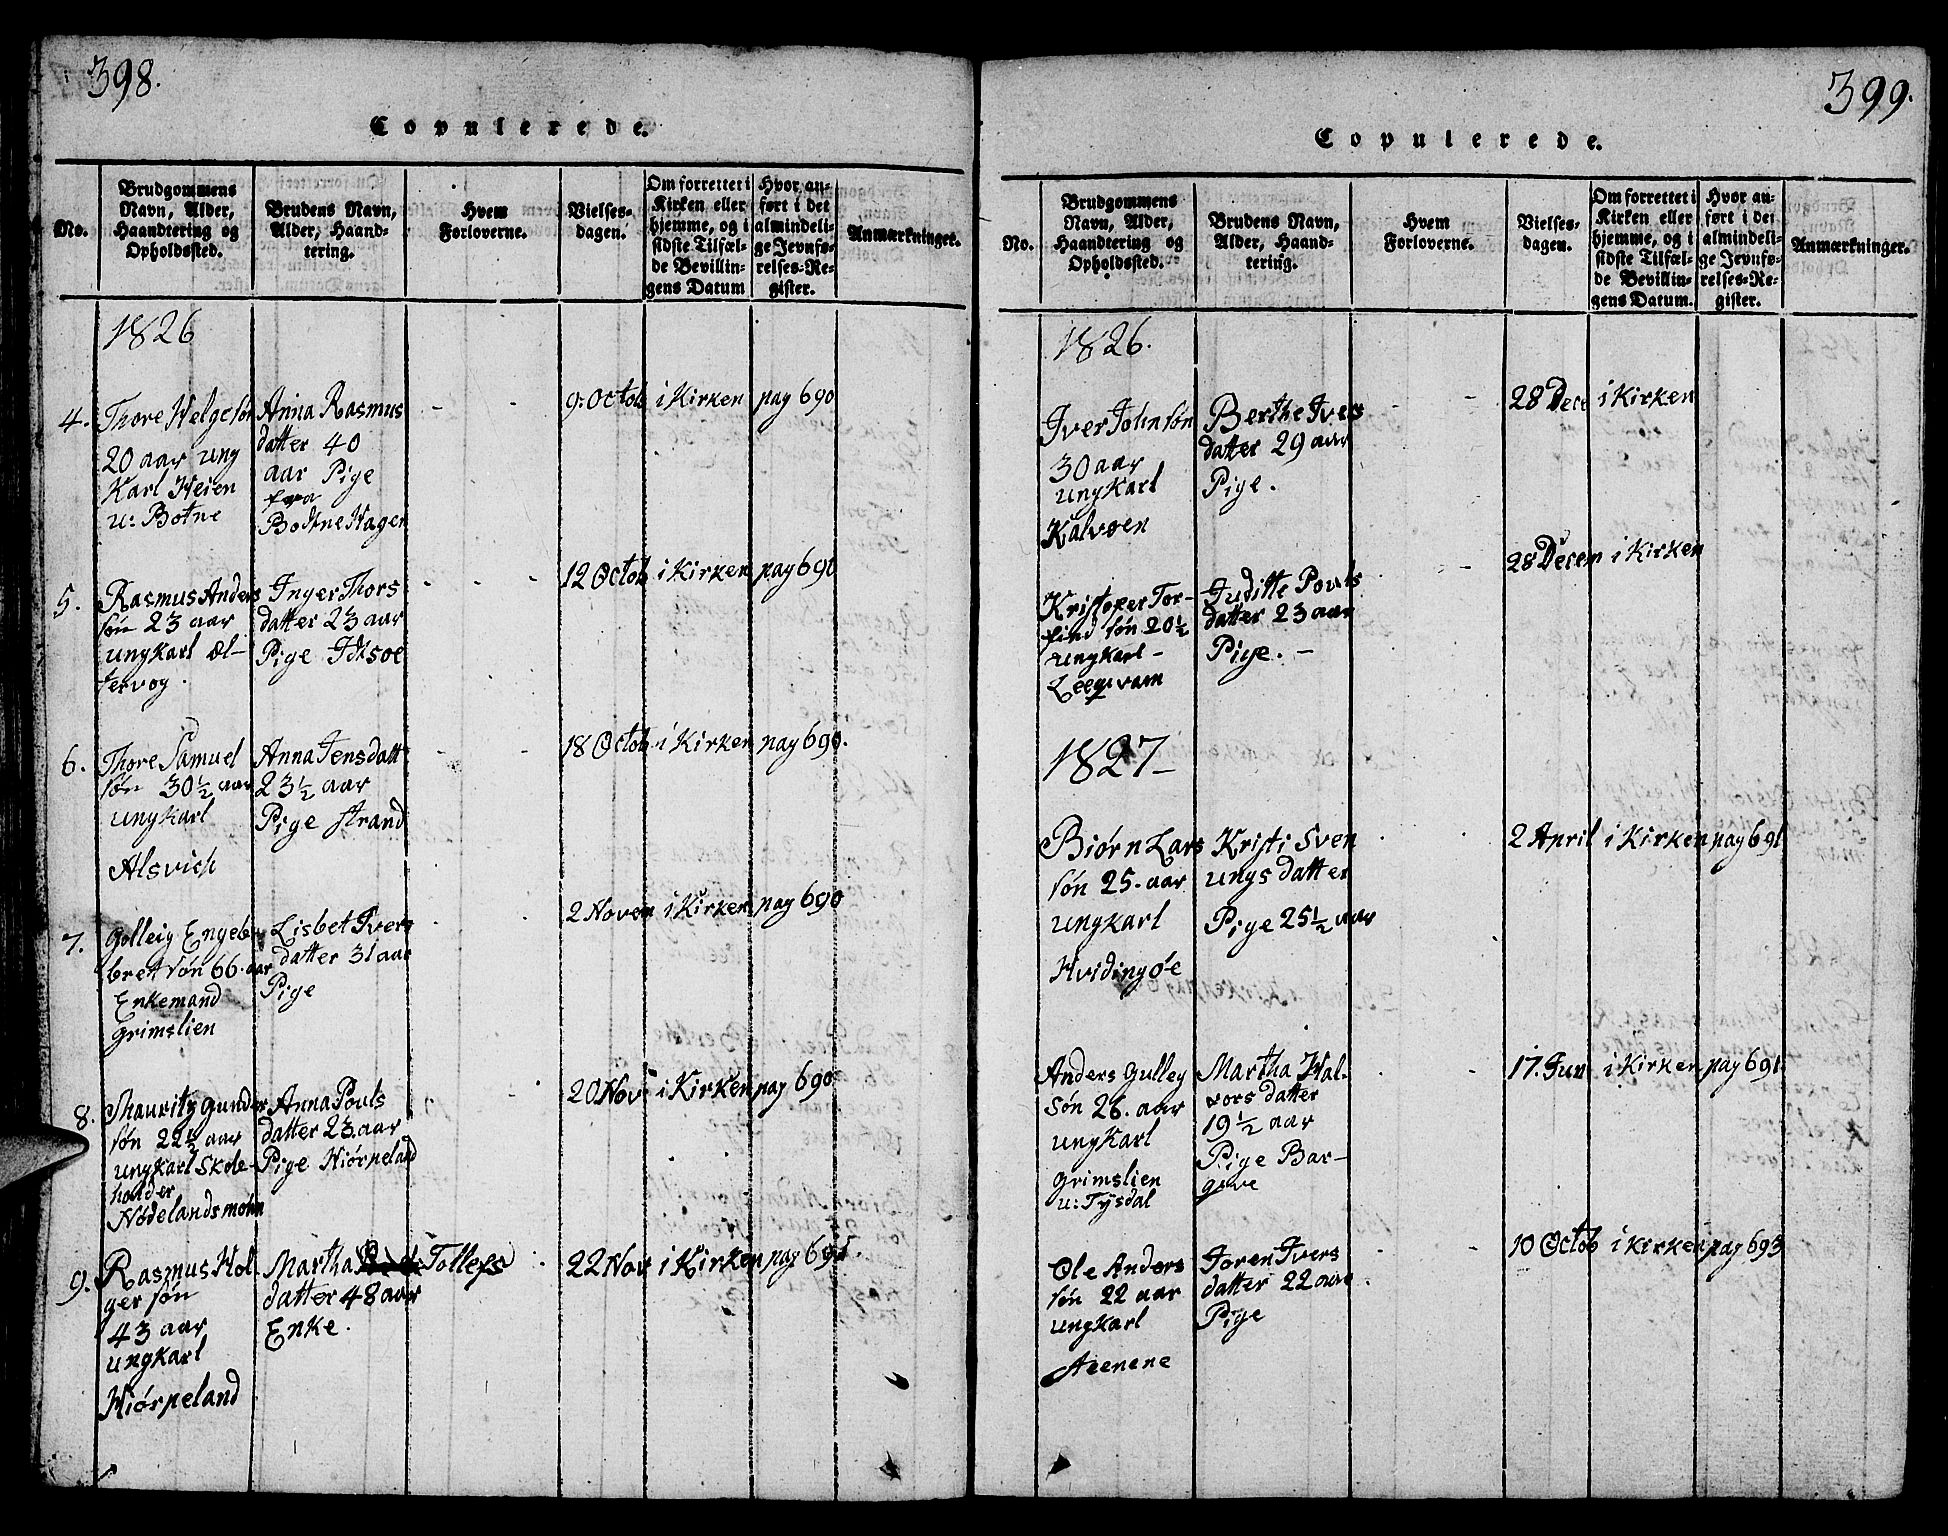 398.
Copulerede.
No.
Brudgommens
Navn, Alder,
Haandtering og
Opholdssted.
Brudens Navn,
Alder, Haand-
tering.
Hvem
Forloverne.
Vielses-
dagen.
Om forrettet i
Kirken eller
hjemme, og i
sidste Tilfæl-
de Bevillin-
gens Datum
Hvor an-
ført i det
almindeli-
ge Jevnfø-
relses-Re-
gister.
Anmærkninger.
1826
4.
Thore Helgesøn
20 aar ung
Karl Heien
u: Botne
Anna Rasmus
datter 40
aar Pige
fra
Bodtne Hagen
9: Octob
i Kirken
pag 690
5.
Rasmus Anders
søn 23 aar
ungkarl Øl-
tervog.
Inger Thors
datter 23 aar
Pige Idsøe
12 Octob
i Kirken
pag 690
6.
Thore Samuel
søn 30½ aar
ungkarl
Alsvich
Anna Jensdatt
23½ aar
Pige strand
18 Octob
i Kirken
pag 690.
7.
Golleig Engeb
bret søn 66. aar
Enkemand
Grimslien
Lisbet Ivers
datter 31 aar
Pige
2 Novem
i Kirken
pag 690
8.
Mauritz Gunder
søn 22½ aar
ungkarl Skole-
holder
Nødelandsmoen
Anna Pouls
datter 23 aar
Pige Hiørpeland
20 Nov
i Kirken
pag 690
9.
Rasmus Hol
ger søn
43 aar
ungkarl
Hiørpeland
Martha Tollefs
datter 48 aar
Enke.
22 Nov
i Kirken
pag 691.
399.
Copulerede.
No.
Brudgommens
Navn, Alder,
Haandtering og
Opholdssted.
Brudens Navn,
Alder, Haand-
tering.
Hvem
Forloverne.
Vielses-
dagen.
Om forrettet i
Kirken eller
hjemme, og i
sidste Tilfæl-
de Bevillin-
gens Datum.
Hvor an-
ført i det
almindeli-
ge Jevnfø-
relses-Re-
gister.
Anmærkninger.
1826.
Iver Johnsøn
30 aar
ungkarl
Kalvøen
Berthe Ivers
datter 29 aar
Pige.
28 Dece
i Kirken
Kristofer Tor-
find søn 20½
ungkarl-
Leeqvam
Juditte Pouls
datter 23 aar
Pige. -
28 Decem
i Kirken
1827-
Biørn Lars
søn 25. aar
ungkarl
Hvidingøe
Kristi Sven
ungs datter
Pige 25½ aar
2 April
i Kirken
pag 691
Anders Gulley
søn 26. aar
ungkarl
Grimslien
u: Tysdal
Martha Hal-
vors datter
19½ aar
Pige Bar-
gave
17. Jun
i Kirken
pag 691
Ole Anders
søn 22 aar
ungkarl
Aeenene
Joren Ivers
datter 22 aar.
Pige
10 Octob
i Kirken
pag 693